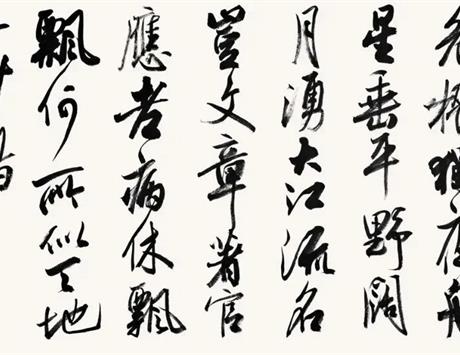 危檣獨夜舟
星垂平野闊
月湧大江流名
豈文章著官
應老病休飄
飄何所似天地